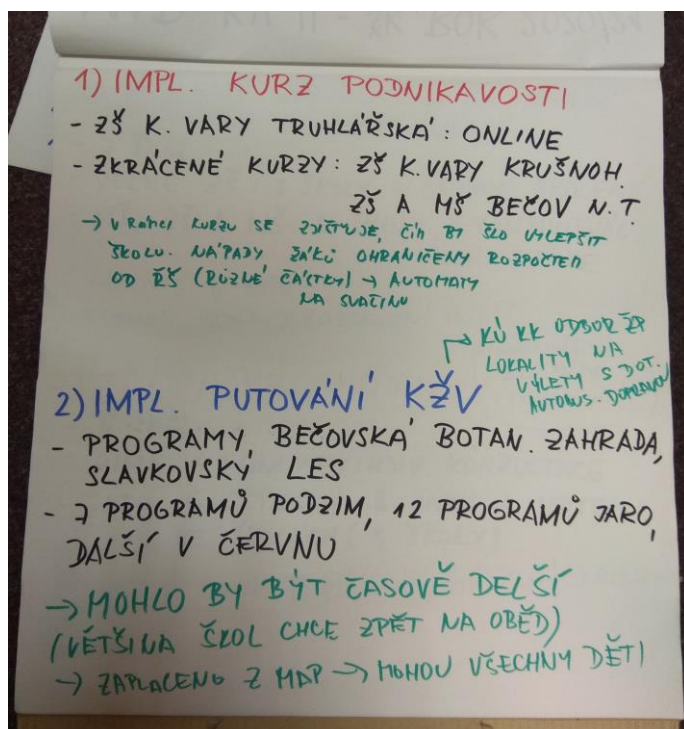 1) IMPL. KURZ PODNIKAVOSTI
- ZŠ K. VARY TRUHLÁŘSKÁ: ONLINE
- ZKRÁCENÉ KURZY: ZŠ K. VARY KRUŠNOH.
ZŠ A MŠ BEČOV N. T.
→ V RÁMCI KURZU SE ZJIŠŤUJE, ČÍM BY ŠLO VYLEPŠIT
ŠKOLU. NÁPADY ŽÁKŮ OHRANIČENY ROZPOČTEM
OD ŘŠ (RŮZNÉ ČÁSTKY) → AUTOMATY
NA SVAČINU
→ KÚ KK ODBOR ŽP
LOKALITY NA
VÝLETY S DOT.
AUTOBUS. DOPRAVOU
2) IMPL. PUTOVÁNÍ KŽV
- PROGRAMY, BEČOVSKÁ BOTAN. ZAHRADA,
SLAVKOVSKÝ LES
- 7 PROGRAMŮ PODZIM, 12 PROGRAMŮ JARO,
DALŠÍ V ČERVNU
→ MOHLO BY BÝT ČASOVĚ DELŠÍ
(VĚTŠINA ŠKOL CHCE ZPĚT NA OBĚD)
→ ZAPLACENO Z MAP → MOHOU VŠECHNY DĚTI